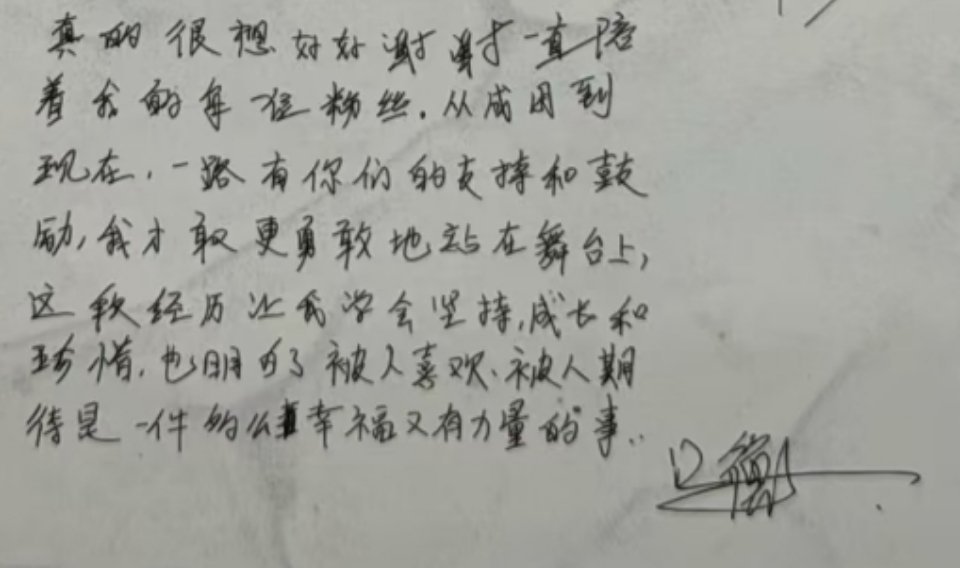 真的很想好好谢谢一直陪
着我的每一位粉丝.从成团到
现在,一路有你们的支持和鼓
励,我才敢更勇敢地站在舞台上,
这段经历让我学会坚持,成长和
珍惜.也明白了被人喜欢、被人期
待是一件多么幸福又有力量的事..